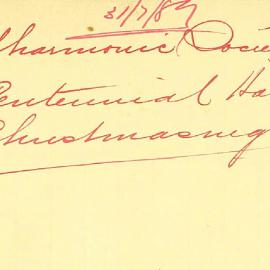 31/7/89
lharmonic Socie
Centennial Ha
Christmasnig